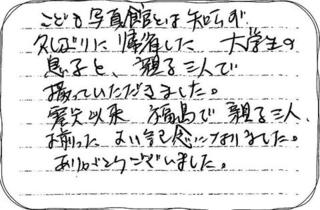 こども写真館とは知らず
久しぶりに帰省した 大学生の
息子と、親子三人で
撮っていただきました。
震災以来 福島で親子三人、
揃った よい記念になりました。
ありがとうございました。